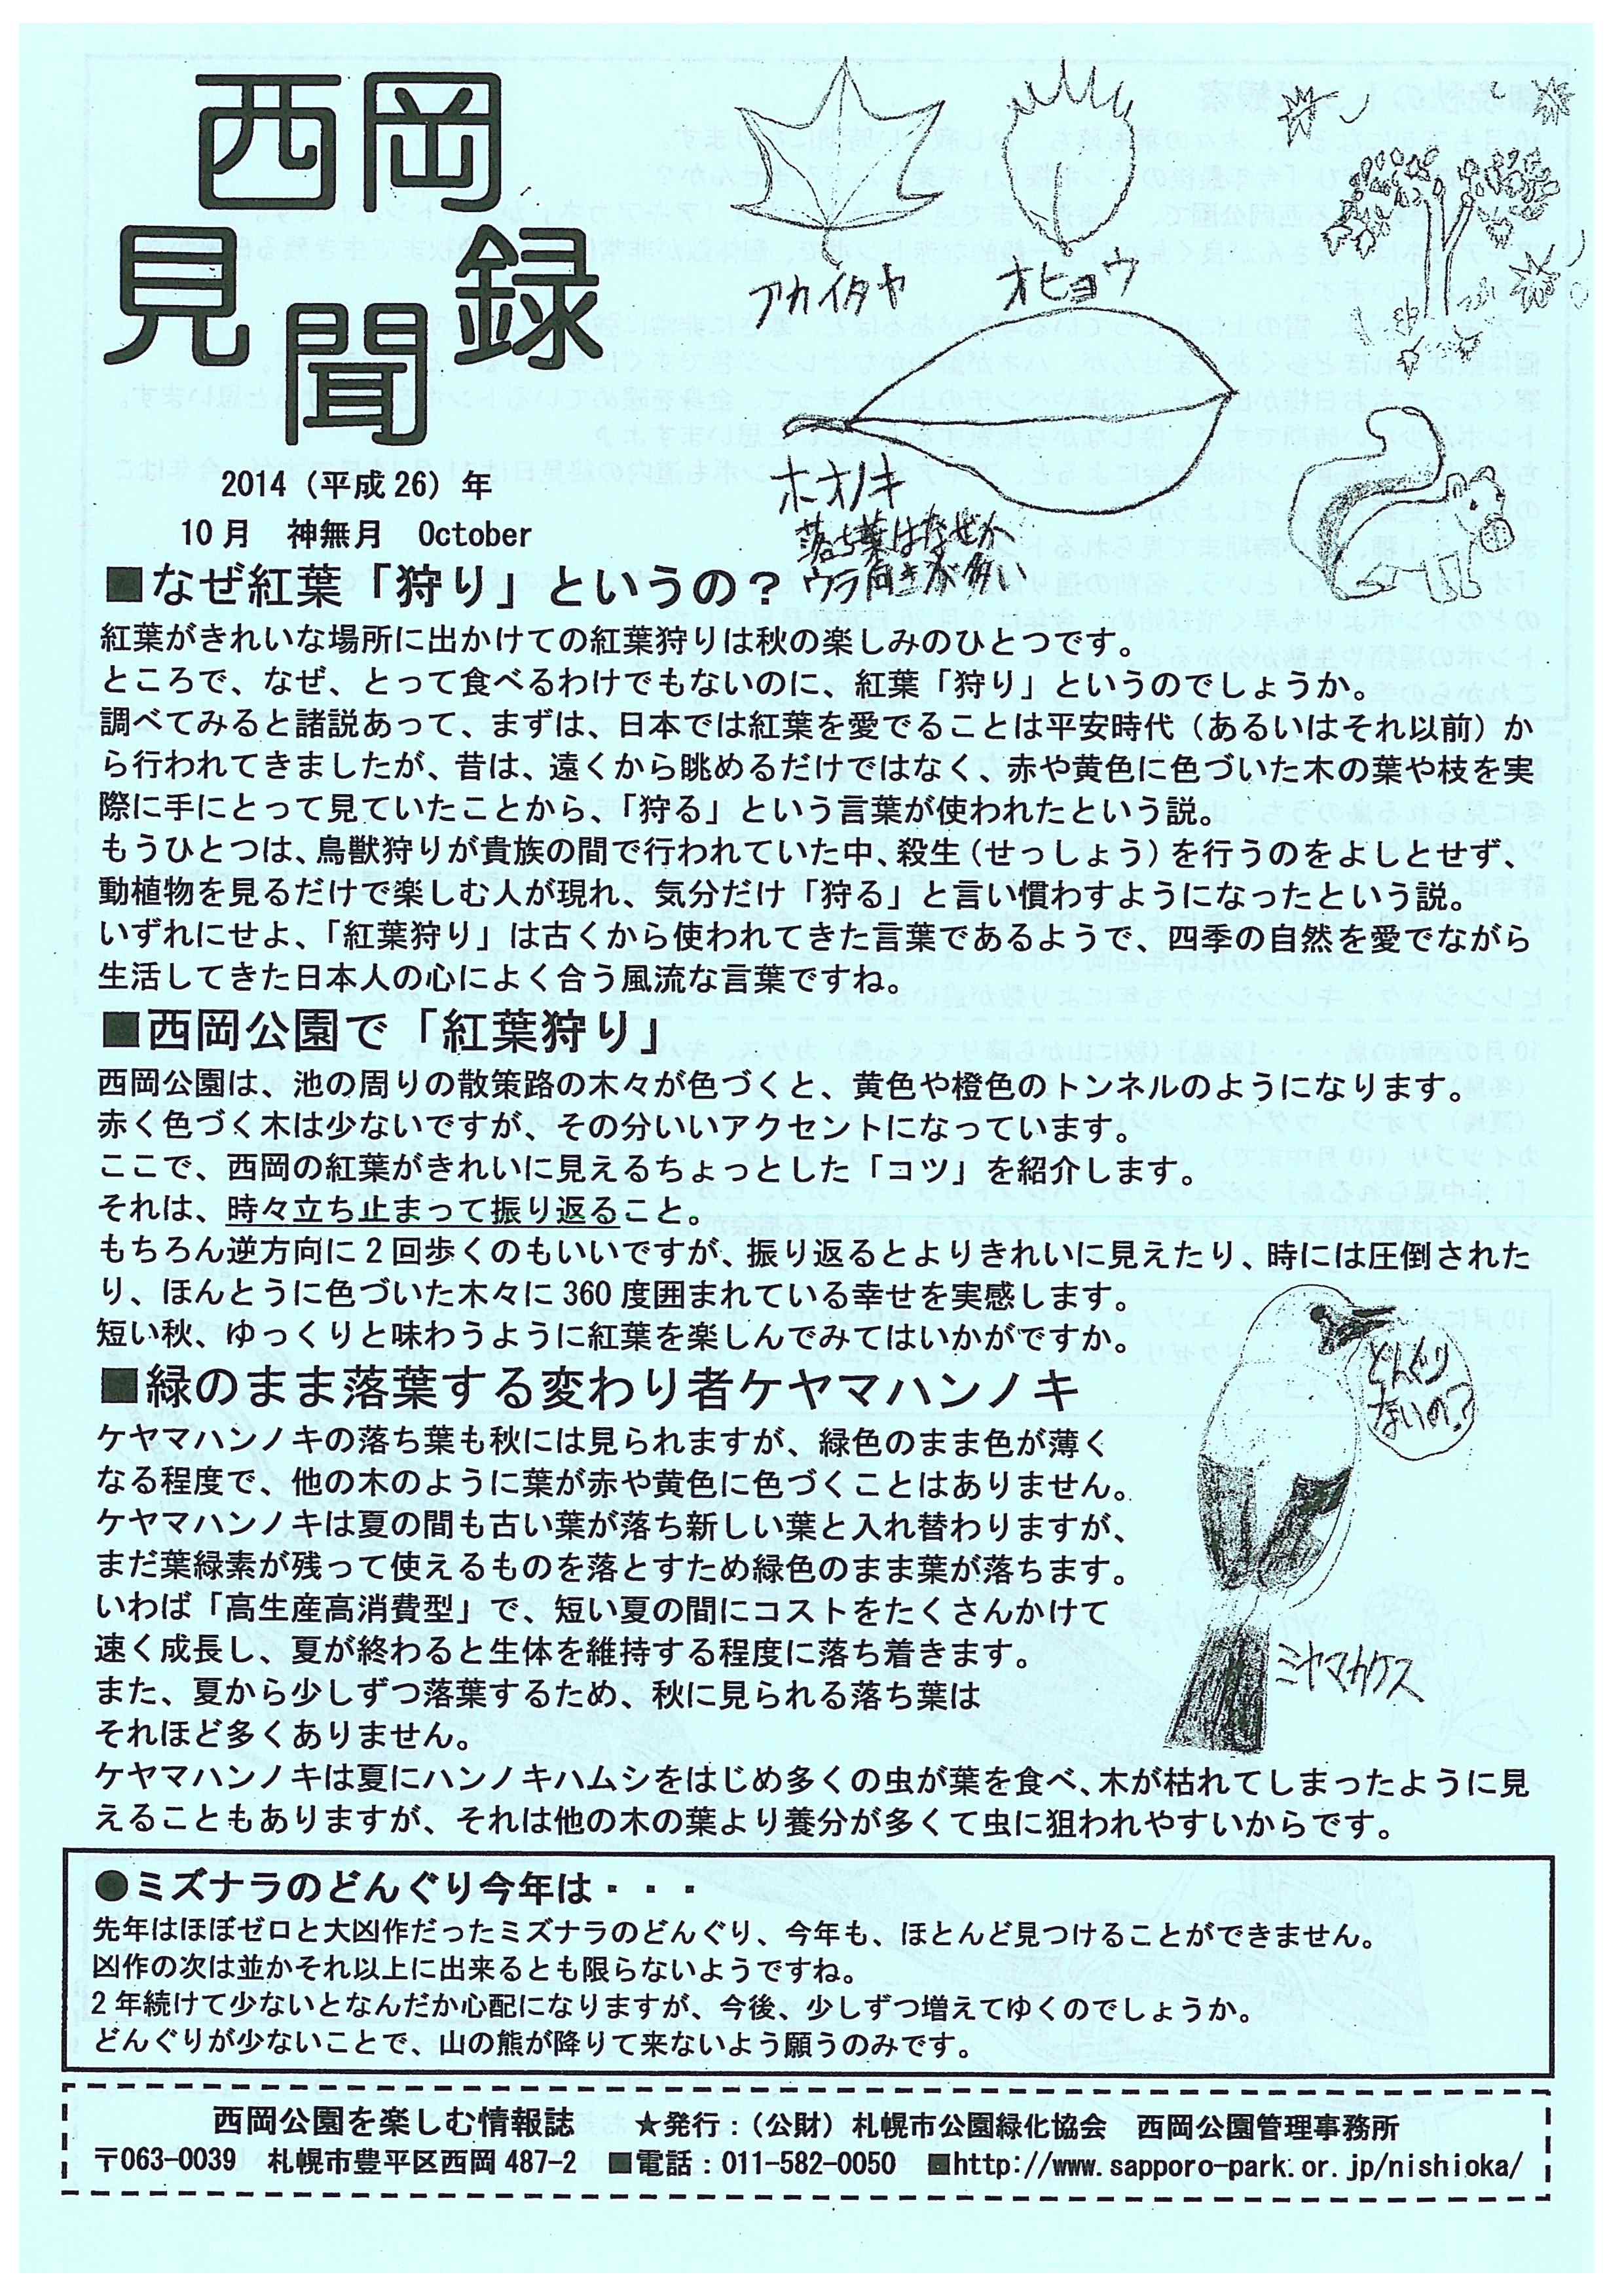 西岡
見聞録
2014（平成26）年
10月　神無月　October
アカイタヤ
オヒョウ
ホオノキ
落ち葉はなぜか
ウラ向きが多い
■なぜ紅葉「狩り」というの？
紅葉がきれいな場所に出かけての紅葉狩りは秋の楽しみのひとつです。
ところで、なぜ、とって食べるわけでもないのに、紅葉「狩り」というのでしょうか。
調べてみると諸説あって、まずは、日本では紅葉を愛でることは平安時代（あるいはそれ以前）か
ら行われてきましたが、昔は、遠くから眺めるだけではなく、赤や黄色に色づいた木の葉や枝を実
際に手にとって見ていたことから、「狩る」という言葉が使われたという説。
もうひとつは、鳥獣狩りが貴族の間で行われていた中、殺生（せっしょう）を行うのをよしとせず、
動植物を見るだけで楽しむ人が現れ、気分だけ「狩る」と言い慣わすようになったという説。
いずれにせよ、「紅葉狩り」は古くから使われてきた言葉であるようで、四季の自然を愛でながら
生活してきた日本人の心によく合う風流な言葉ですね。
■西岡公園で「紅葉狩り」
西岡公園は、池の周りの散策路の木々が色づくと、黄色や橙色のトンネルのようになります。
赤く色づく木は少ないですが、その分いいアクセントになっています。
ここで、西岡の紅葉がきれいに見えるちょっとした「コツ」を紹介します。
それは、時々立ち止まって振り返ること。
もちろん逆方向に2回歩くのもいいですが、振り返るとよりきれいに見えたり、時には圧倒された
り、ほんとうに色づいた木々に360度囲まれている幸せを実感します。
短い秋、ゆっくりと味わうように紅葉を楽しんでみてはいかがですか。
■緑のまま落葉する変わり者ケヤマハンノキ
ケヤマハンノキの落ち葉も秋には見られますが、緑色のまま色が薄く
なる程度で、他の木のように葉が赤や黄色に色づくことはありません。
ケヤマハンノキは夏の間も古い葉が落ち新しい葉と入れ替わりますが、
まだ葉緑素が残って使えるものを落とすため緑色のまま葉が落ちます。
いわば「高生産高消費型」で、短い夏の間にコストをたくさんかけて
速く成長し、夏が終わると生体を維持する程度に落ち着きます。
また、夏から少しずつ落葉するため、秋に見られる落ち葉は
それほど多くありません。
ケヤマハンノキは夏にハンノキハムシをはじめ多くの虫が葉を食べ、木が枯れてしまったように見
えることもありますが、それは他の木の葉より養分が多くて虫に狙われやすいからです。
どんぐり
ないの？
ミヤマカケス
●ミズナラのどんぐり今年は・・・
先年はほぼゼロと大凶作だったミズナラのどんぐり、今年も、ほとんど見つけることができません。
凶作の次は並かそれ以上に出来るとも限らないようですね。
2年続けて少ないとなんだか心配になりますが、今後、少しずつ増えてゆくのでしょうか。
どんぐりが少ないことで、山の熊が降りて来ないよう願うのみです。
西岡公園を楽しむ情報誌　★発行：（公財）札幌市公園緑化協会　西岡公園管理事務所
〒063-0039　札幌市豊平区西岡487-2　■電話：011-582-0050　■http://www.sapporo-park.or.jp/nishioka/